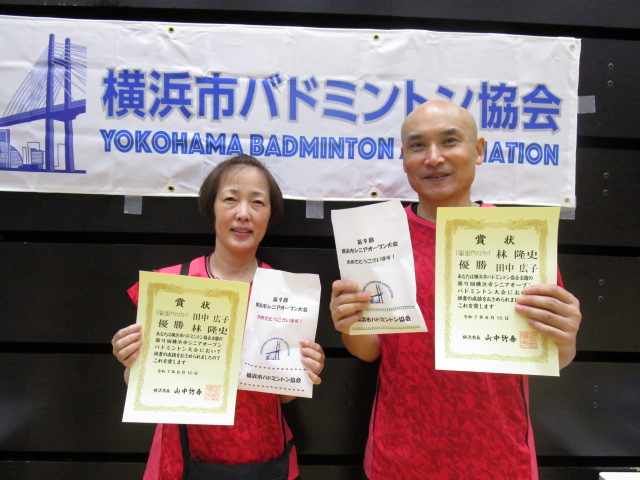 横浜市バドミントン協会
YOKOHAMA BADMINTON A IATION
賞 状
田中 広子
優 勝 林 隆史
あなたは横浜市バドミントン協会主催の
第9回横浜市シニアオープン
バドミントン大会において
頭書の成績をおさめられましたので
これを賞します
令和7年8月10日
横浜市長 山中竹春
第9回
横浜市シニアオープン大会
おめでとうございます!
横浜市バドミントン協会
第9回
横浜市シニアオープン大会
おめでとうございます!
ドミントン協会
賞 状
林 隆史
優 勝 田中 広子
あなたは横浜市バドミントン協会主催の
第9回横浜市シニアオープン
バドミントン大会において
頭書の成績をおさめられましたので
これを賞します
令和7年8月10日
横浜市長 山中竹春